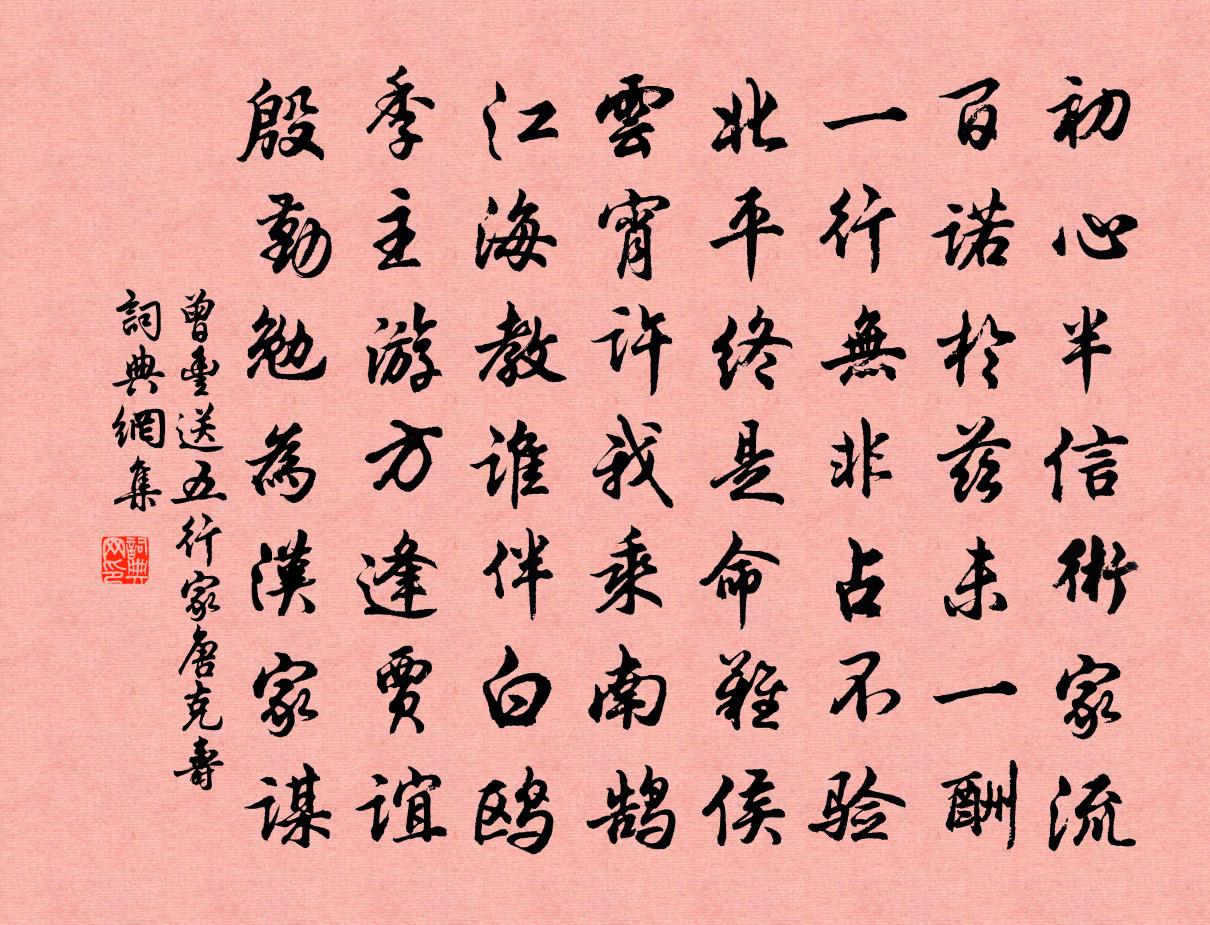 初心半信術家流
百諾於茲未一酬
一行無非占不驗
北平終是命難侯
雲宵許我乘南鹄
江海教誰伴白鸥
季主游方逢賈誼
殷勤勉為漢家謀
曾豐送五行家唐克壽
詞典網集
詞典网印